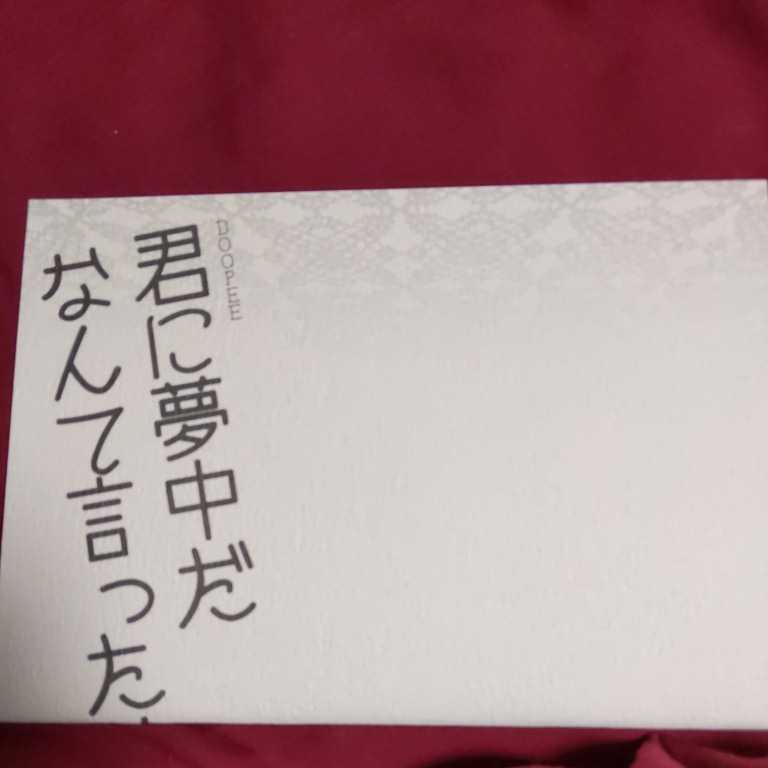 DOOPEE
君に夢中だ
なんて言った